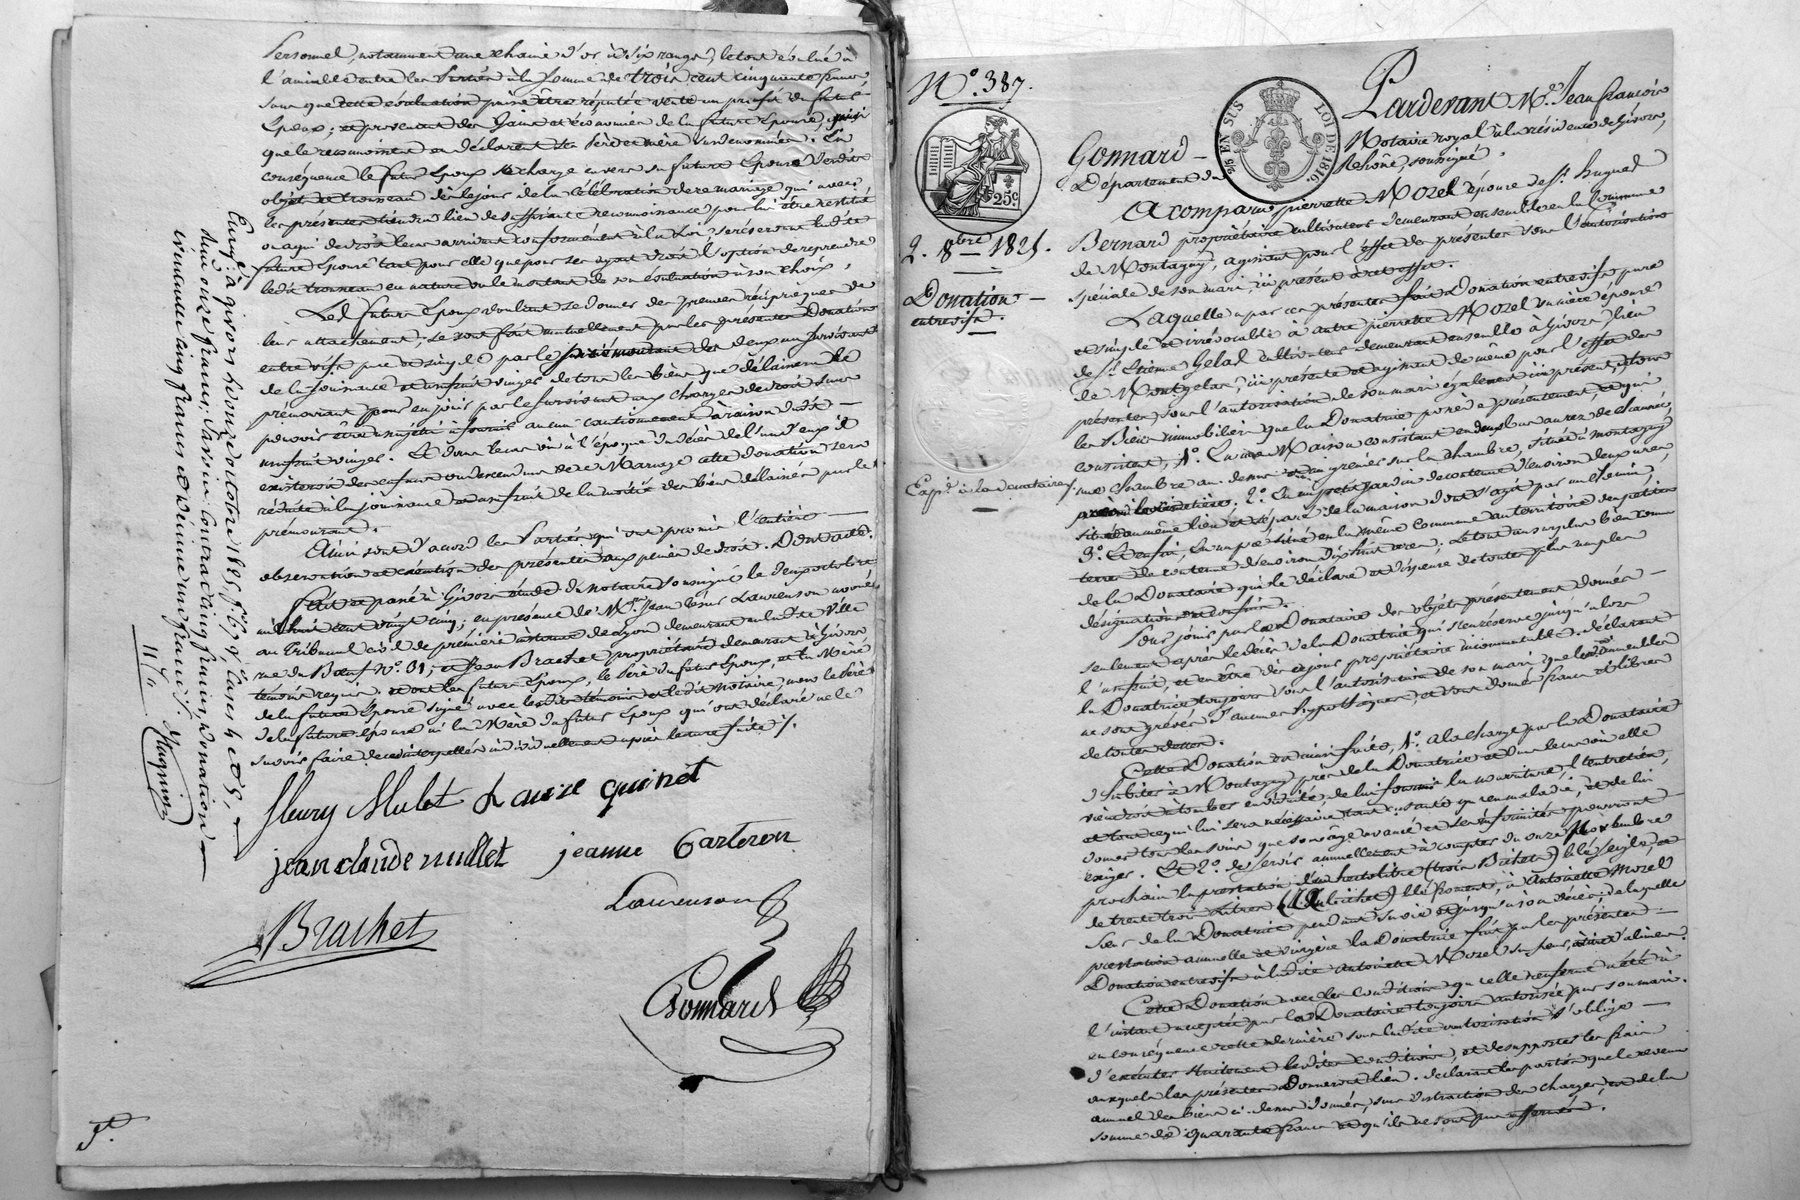 personnel, notamment une chaine d'or à six rangs, le tout évalué à
l'amiable entre les Parties à la somme de trois cent cinquante francs,
sans que cette évaluation puisse être réputée vente au profit du futur
Epoux; et provenant des gains et économies de la future Epouse, ainsi
que le reconnoissent et déclarent ses père et mère surnommés. En
conséquence le futur Epoux se charge envers sa future Epouse desdits
objets et trousseau dès le jour de la célébration de ce mariage qui avec
les présentes tiendra lieu de suffisante reconnoissance pour lui être restitué
ou à qui de droit leur arrivant conformément à la Loi, se réservant ladite
future Epouse tant pour elle que pour ses ayant droit l'option de reprendre
ledit trousseau en nature ou le montant de son évaluation à son choix.
Les futurs Epoux voulant se donner des preuves réciproques de
leur attachement, se sont fait mutuellement par les présentes Donation
entre vifs pure et simple par le prémourant des deux au survivant
de la jouissance et usufruit viager de tous les biens que délaissera le
prémourant pour en jouir par le survivant aux charges de droit sans
pouvoir être assujéti à fournir aucun cautionnement à raison dudit
usufruit viager. Et dans le cas où à l'époque du décès de l'un d'eux il
existeroit des enfans ou descendans de ce Mariage cette donation sera
réduite à la jouissance et usufruit de la moitié des biens délaissés par le
prémourant.
Ainsi sont d'accord les Parties qui ont promis l'entière
observation et exécution des présentes aux peines de droit. Dont acte.
Fait et passé à Givors étude du notaire soussigné le deux octobre
mil huit cent vingt cinq; en présence de Mr Jean César Laurenson avoué
au Tribunal civil de première instance de Lyon demeurant en ladite Ville
rue du Bœuf No. 31, et Jean Brachet propriétaire demeurant à Givors
témoins requis. Et ont les futurs Epoux, le Père du futur Epoux, et la Mère
de la future Epouse signé avec lesdits témoins et ledit Notaire, non le Père
de la future épouse ni la Mère du futur Epoux qui ont déclaré ne le
savoir faire de ce interpellés individuellement après lecture faite.
fleury Mulet Louise quinet
jean claude mullet jeanne Carteron
Laurenson
Brachet
Gonnard
Enreg. à givors le onze octobre 1825, fo. 67 Vo, Cases 4 et 5,
reçu onze francs, savoir contrat cinq francs, donation
11 fr
No. 387.
25c
2. 8bre 1825.
Donation
entrevifs.
Expn. à la donataire
26 EN SUS
LOI DE 1816.
Pardevant Me. Jean françois
Gonnard Notaire royal à la résidence de Givors,
Département du Rhône, soussigné.
A comparu pierrette Mozel épouse de Sr. hugues
Bernard propriétaire cultivateur demeurant ensemble en la Commune
de Montagny, agissant pour l'effet des présentes sous l'autorisation
spéciale de son mari ici présent à cet effet.
Laquelle a par ces présentes fait Donation entrevifs pure
et simple et irrévocable à autre pierrette Mozel sa nièce épouse
de Sr. Etienne Gelas cultivateur demeurant ensemble à Givors, lieu
de Montgelas, ici présente et agissant de même pour l'effet des
présentes sous l'autorisation de son mari également ici présent, de tous
les Biens immobiliers que la Donatrice possède présentement, et qui
consistent, 1o. En une Maison consistant en deux bas au rez de chaussée,
une chambre au-dessus et un grenier sur la chambre, située à Montagny
2o. En un petit jardin de contenue d'environ deux ares,
situé au même lieu et séparé de la maison dont s'agit par un chemin,
3o. Et enfin, En un pré situé en la même commune au territoire des petites
terres de contenue d'environ dix huit ares. Le tout au surplus bien connu
de la Donataire qui le déclare et dispense de toute plus ample
désignation et confins.
Pour jouir par la Donataire des objets présentement donnés
seulement après le décès de la Donatrice qui s'en réserve jusqu'alors
l'usufruit, et en être dès ce jour propriétaire incommutable. déclarant
la Donatrice toujours sous l'autorisation de son mari que les immeubles
ne sont grevés d'aucunes hypothèques, et sont donnés francs et libres
de toutes dettes.
Cette Donation est ainsi faite, 1o. à la charge par la Donataire
d'habiter à Montagny près de la Donatrice et dans le cas où elle
viendroit à tomber en viduité, de lui fournir la nourriture, l'entretien,
et tout ce qui lui sera nécessaire tant en santé qu'en maladie, et de lui
donner tous les soins que son âge avancé et ses infirmités pourront
exiger. Et 2o. de servir annuellement à compter du onze Novembre
prochain la prestation d'un hectolitre (trois Bichets) blé seigle, et
de trente trois Litres (un bichet) blé froment, à Antoinette Mozel
sœur de la Donatrice pendant sa vie et jusqu'à son décès; de laquelle
prestation annuelle et viagère la Donatrice fait par les présentes
Donation entrevifs à ladite Antoinette Mozel sa sœur, à titre d'alimens.
Cette Donation avec les conditions qu'elle renferme a été à
l'instant acceptée par la Donataire toujours autorisée par son mari.
en conséquence cette dernière sous ladite autorisation s'oblige
d'exécuter strictement lesdites conditions, et de supporter les frais
auxquels les présentes Donneront lieu. déclarant les parties que le revenu
annuel des biens ci-dessus donnés, sans distraction des charges, est de la
somme de quarante francs et qu'ils ne sont pas affermés.